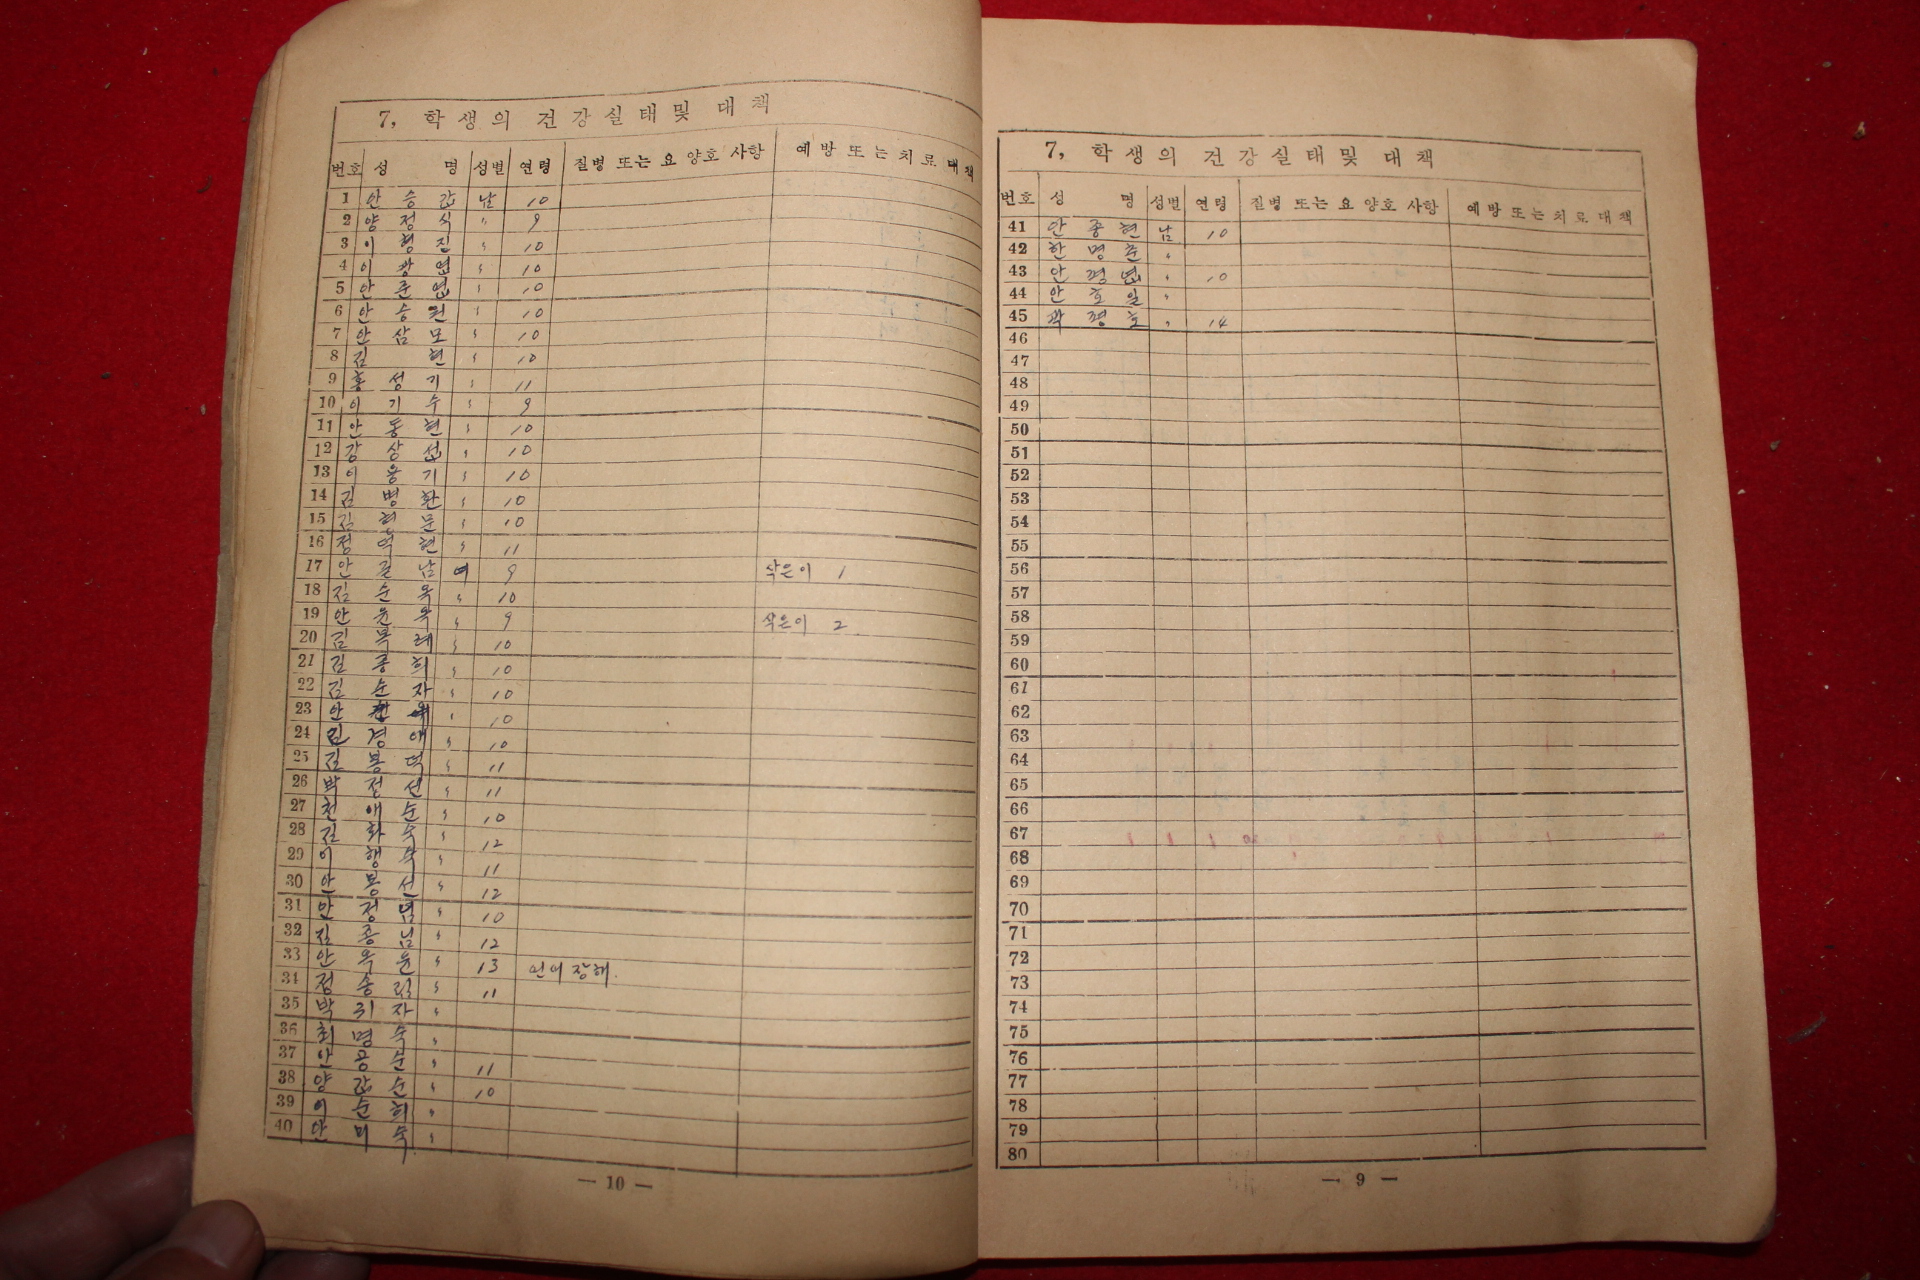 7, 학생의 건강실태및 대책
번호 성 명 성별 연령 질병 또는 요 양호 사항 예방 또는 치료 대책
1 안승갑 남 10
2 양정식 〃 9
3 이형진 〃 10
4 이광엽 〃 10
5 안준엽 〃 10
6 안승원 〃 10
7 안삼모 〃 10
8 김현 〃 10
9 홍성기 〃 11
10 이기수 〃 9
11 안동현 〃 10
12 강상섭 〃 10
13 이웅기 〃 10
14 김병환 〃 10
15 김희문 〃 10
16 정덕현 〃 11
17 안길남 여 9 삭은이 1
18 김순옥 〃 10
19 안윤옥 〃 9 삭은이 2
20 김복례 〃 10
21 김종희 〃 10
22 김순자 〃 10
23 안 〃 10
24 김경애 〃 10
25 김봉덕 〃 11
26 박정선 〃 11
27 천애순 〃 10
28 김화숙 〃 12
29 이행숙 〃 11
30 안봉선 〃 12
31 안정념 〃 10
32 김종님 〃 12
33 안옥윤 〃 13 언어장해.
34 정송림 〃 11
35 박리자 〃
36 최명숙 〃
37 안공순 〃 11
38 양갑순 〃 10
39 이순희 〃
40 안미숙 〃
— 10 —
7, 학생의 건강실태및 대책
번호 성 명 성별 연령 질병 또는 요 양호 사항 예방 또는 치료 대책
41 안종현 남 10
42 한명준 〃
43 안경엽 〃 10
44 안호일 〃
45 곽경호 〃 14
46
47
48
49
50
51
52
53
54
55
56
57
58
59
60
61
62
63
64
65
66
67
68
69
70
71
72
73
74
75
76
77
78
79
80
— 9 —